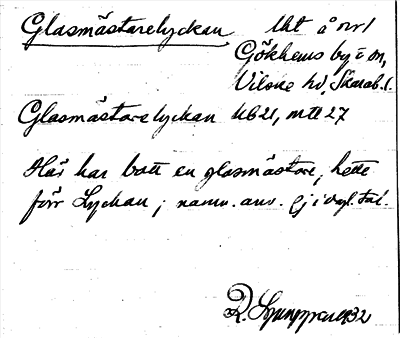 Glasmästarelyckan lht å nr 1
Gökhems by i sn,
Vilske hd, Skarab. l.
Glasmästarelyckan UB21, mtl 27
Här har bott en glasmästare, hette
förr Lyckan; namn. anv. Ej i dagl. tal.
R. 1932